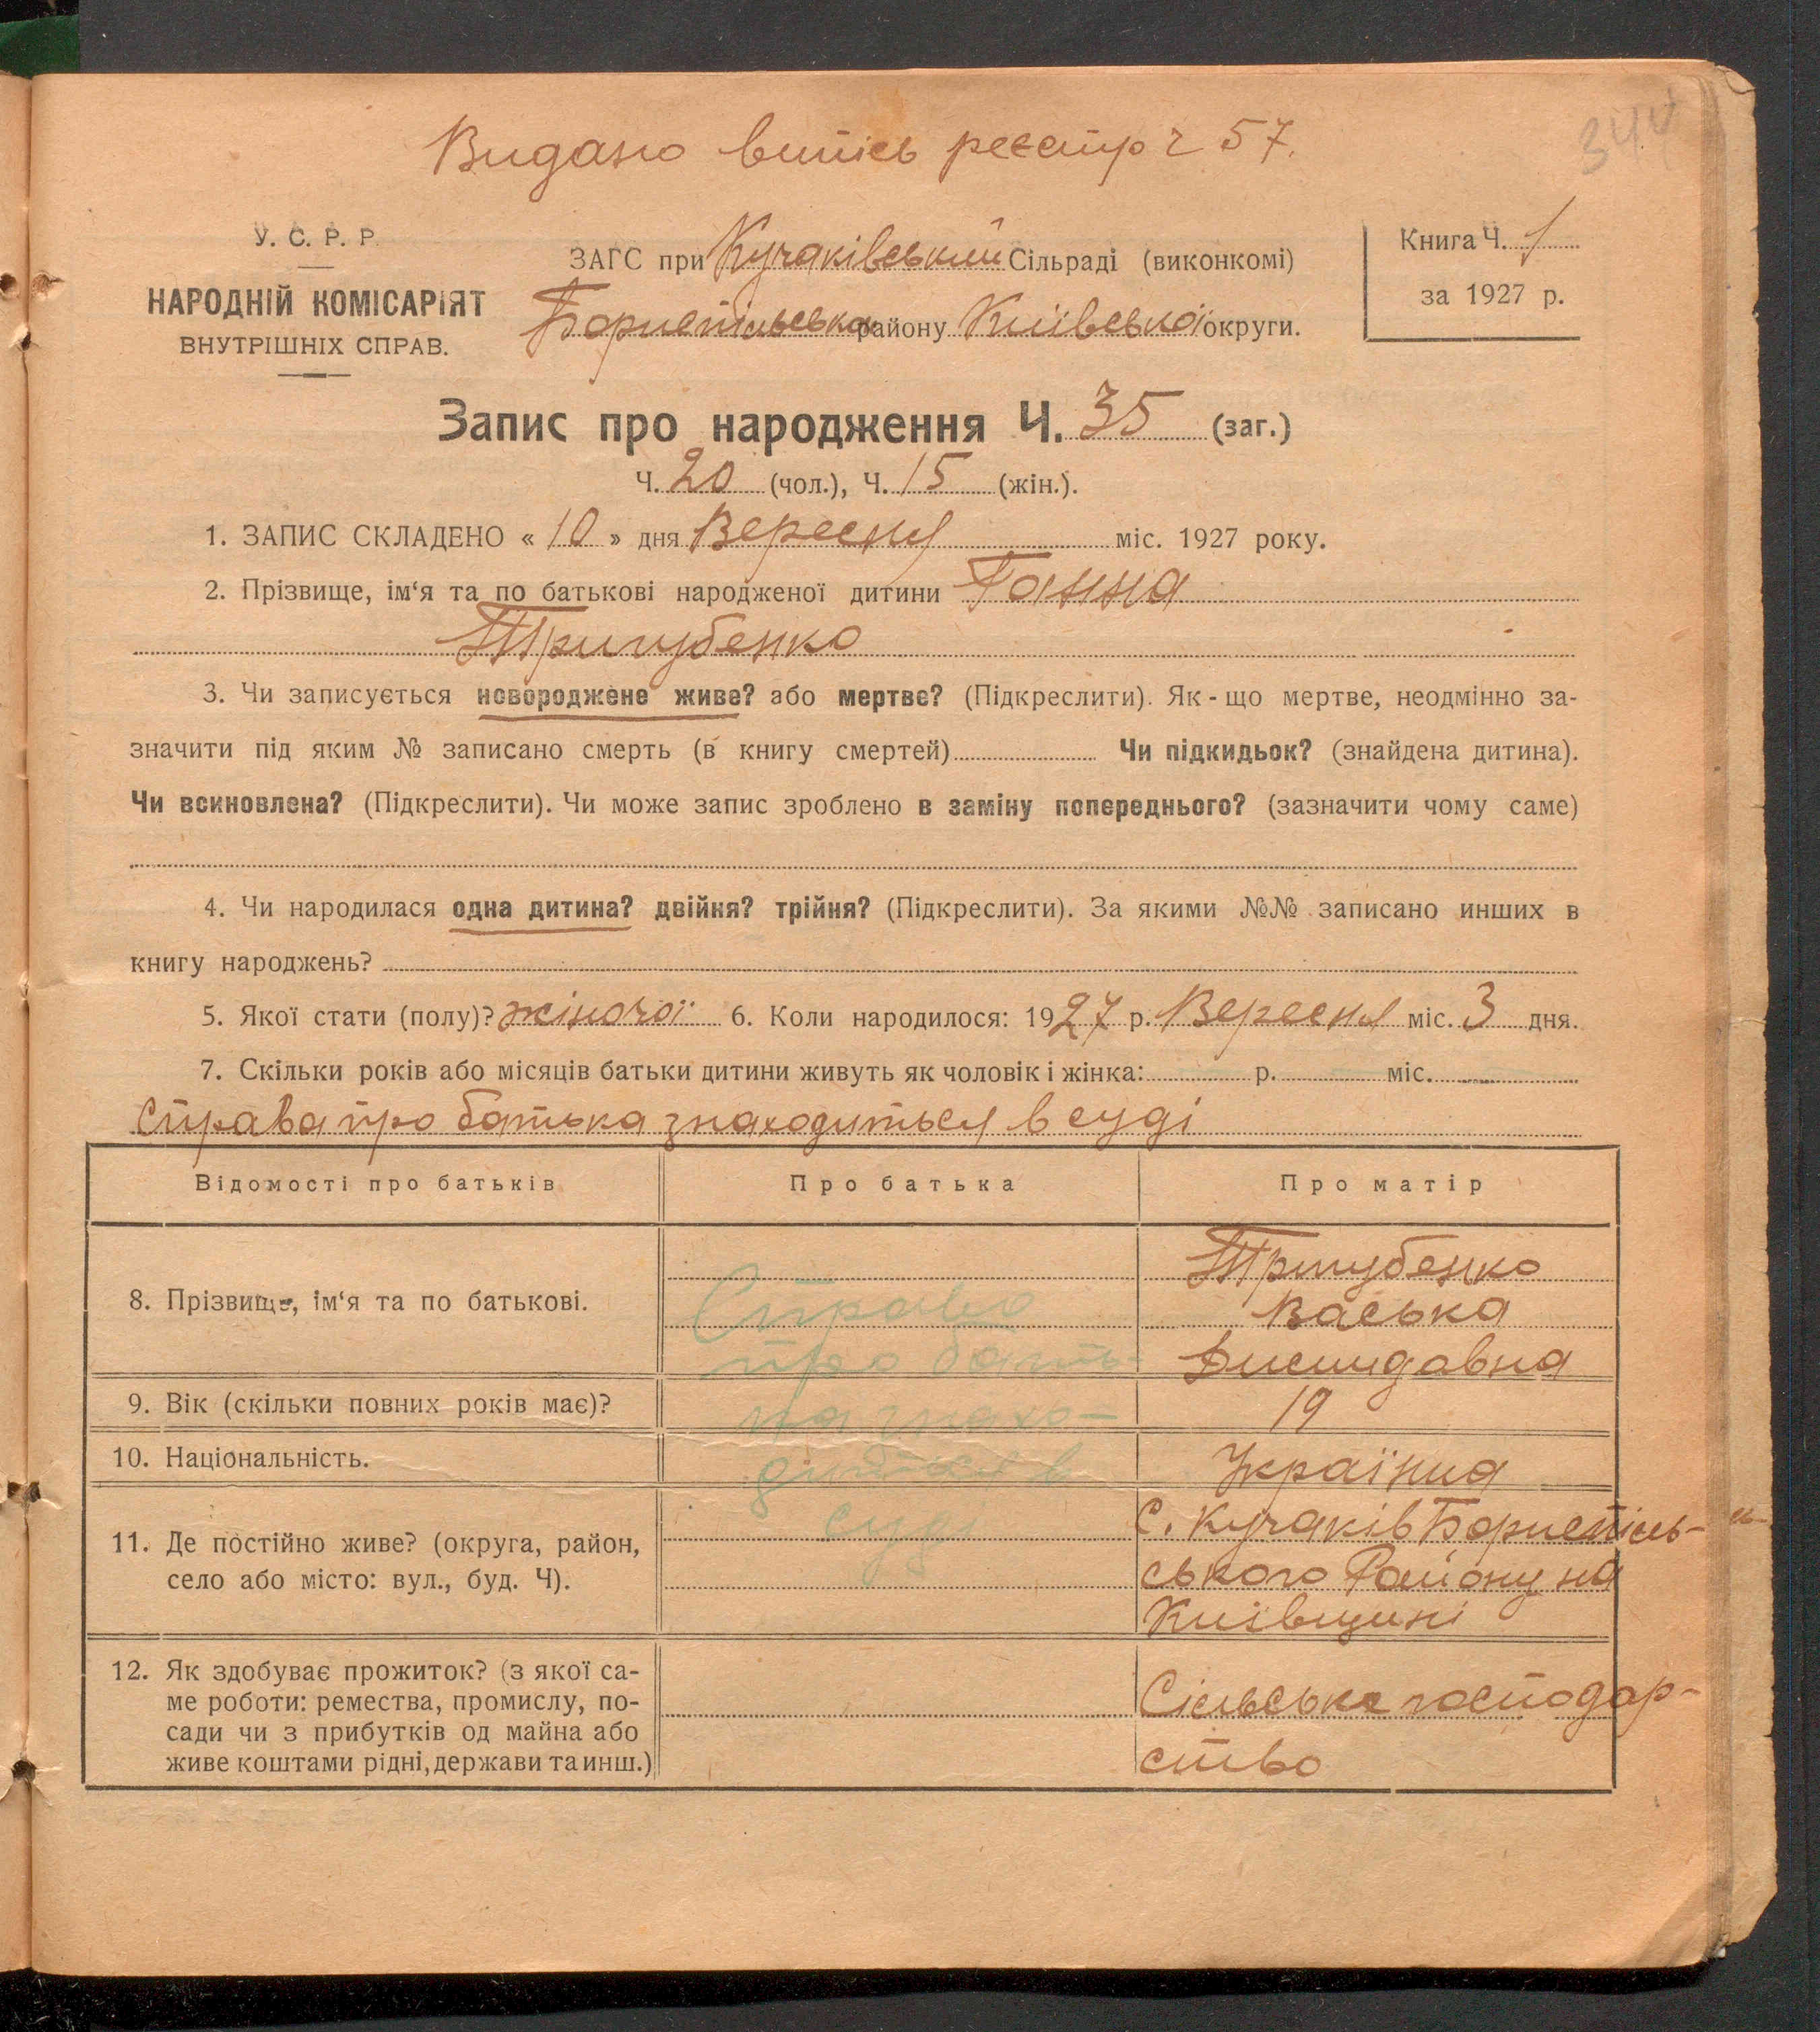 Видано випісь реєстр ч 57.
344
У. С. Р. Р.
НАРОДНІЙ КОМІСАРІЯТ
ВНУТРІШНІХ СПРАВ.
ЗАГС при Кучаківський Сільраді (виконкомі)
Бориспільська району Київської округи.
Книга Ч. 1
за 1927 р.
Запис про народження Ч. 35 (заг.)
Ч. 20 (чол.), Ч. 15 (жін.).
1. ЗАПИС СКЛАДЕНО « 10 » дня Вересня міс. 1927 року.
2. Прізвище, ім‘я та по батькові народженої дитини Ганна
Тригубенко
3. Чи записується новороджене живе? або мертве? (Підкреслити). Як - що мертве, неодмінно за-
значити під яким № записано смерть (в книгу смертей) Чи підкидьок? (знайдена дитина).
Чи всиновлена? (Підкреслити). Чи може запис зроблено в заміну попереднього? (зазначити чому саме)
4. Чи народилася одна дитина? двійня? трійня? (Підкреслити). За якими №№ записано инших в
книгу народжень?
5. Якої стати (полу)? жіночої 6. Коли народилося: 1927 р. Вересня міс. 3 дня.
7. Скільки років або місяців батьки дитини живуть як чоловік і жінка: р. міс.
Справа про батька знаходиться в суді
Відомості про батьків Про батька Про матір
8. Прізвище, ім‘я та по батькові.
Справа
про бать-
ка знахо-
диться в
суді
Тригубенко
Васька
9. Вік (скільки повних років має)? 19
10. Національність. Україниа
11. Де постійно живе? (округа, район,
село або місто: вул., буд. Ч).
С. Кучаків Бориспіль-
ського Району на
Київщині
12. Як здобуває прожиток? (з якої са-
ме роботи: ремества, промислу, по-
сади чи з прибутків од майна або
живе коштами рідні, держави та инш.)
Сільське господар-
ство